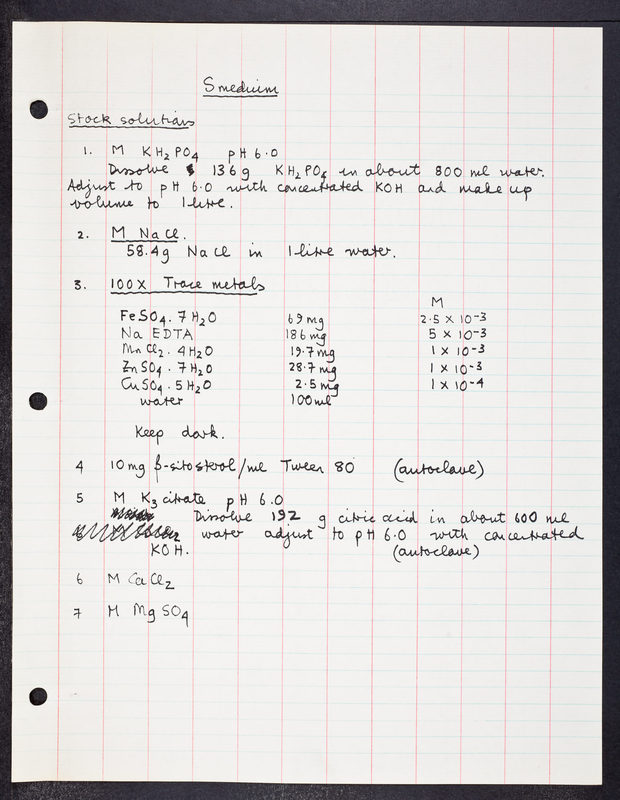 S medium
Stock solutions
1. M KH2PO4 pH 6.0
Dissolve 136g KH2PO4 in about 800 ml water.
Adjust to pH 6.0 with concentrated KOH and make up
volume to 1 litre.
2. M NaCl.
58.4g NaCl in 1 litre water.
3. 100X Trace metals
M
FeSO4. 7H2O 69 mg 2.5 x 10-3
Na EDTA 186 mg 5 x 10-3
MnCl2. 4H2O 19.7 mg 1 x 10-3
ZnSO4. 7H2O 28.7 mg 1 x 10-3
CuSO4. 5H2O 2.5 mg 1 x 10-4
water 100 ml
Keep dark.
4 10 mg β-sitosterol/ml Tween 80 (autoclave)
5 M K3 citrate pH 6.0
Dissolve 192 g citric acid in about 600 ml
water adjust to pH 6.0 with concentrated
KOH. (autoclave)
6 M CaCl2
7 M MgSO4